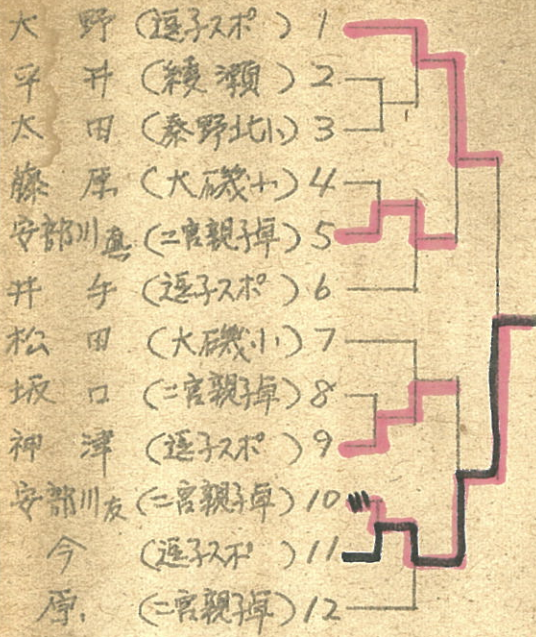 大野(逗子スポ)1
平井(綾瀬)2
太田(秦野北小)3
藤原(大磯小)4
安部川真(二宮親子卓)5
井手(逗子スポ)6
松田(大磯小)7
坂口(二宮親子卓)8
神津(逗子スポ)9
安部川友(二宮親子卓)10
今(逗子スポ)11
原(二宮親子卓)12